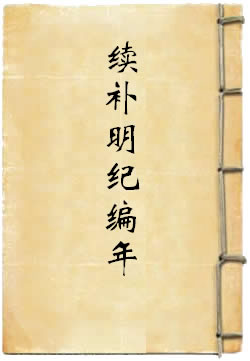 续补明纪编年